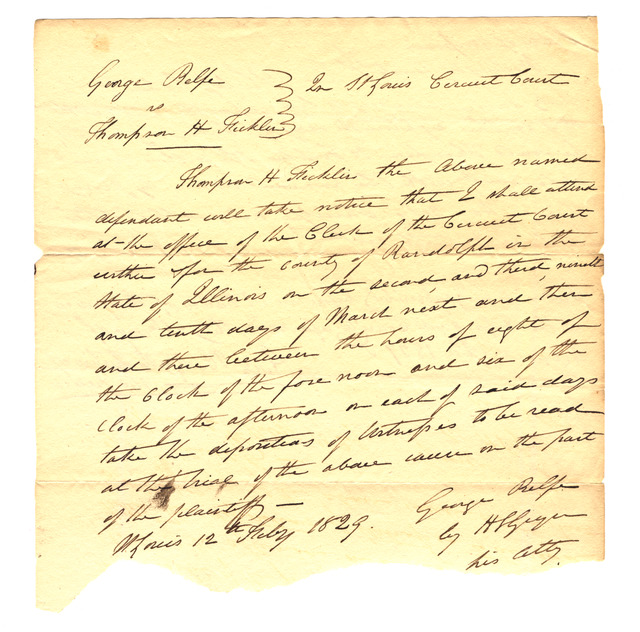 George Relfe } In St Louis Cercuet Court
vs
Thompson H Ficklin
Thompson H Ficklin the above named
defendant will take notice that I shall attend
at the office of the Clerk of the Cercuet Court
within & for the county of Randolph in the
State of Illinois on the second and third, nineth
and tenth days of March next and then
and there between the hours of eight of
the Clock of the fore noon and six of the
Clock of the afternoon on each of said days
take the depositions of Witnesses to be read
at the trial of the above cause on the part
of the plaintiff —
St Louis 12th Feby 1829.
George Relfe
by H S Geyer
his Atty